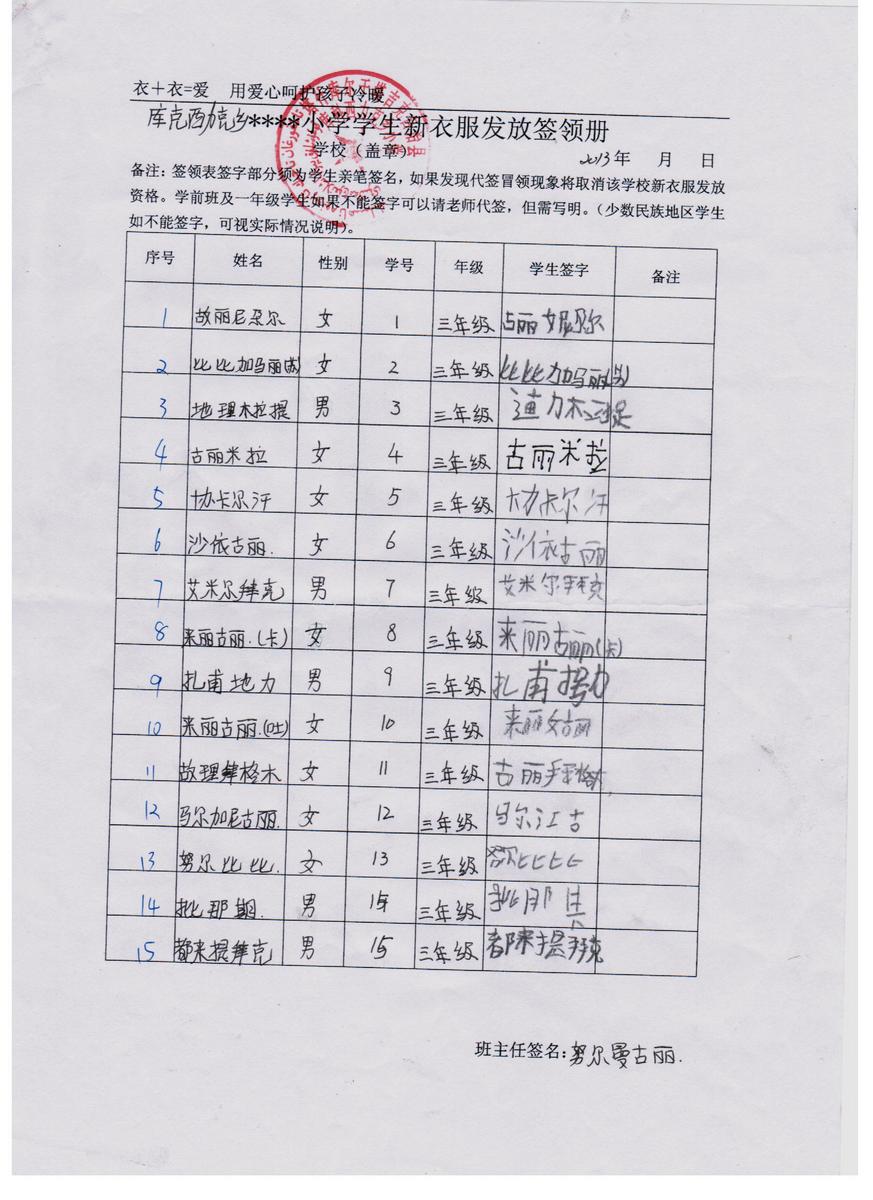 衣＋衣=爱 用爱心呵护孩子冷暖
库克西力克乡****小学学生新衣服发放签领册
学校（盖章） 2013年 月 日
备注：签领表签字部分须为学生亲笔签名，如果发现代签冒领现象将取消该学校新衣服发放
资格。学前班及一年级学生如果不能签字可以请老师代签，但需写明。（少数民族地区学生
如不能签字，可视实际情况说明）。
序号 姓名 性别 学号 年级 学生签字 备注
1 故丽尼朵尔 女 1 三年级
2 比比加玛丽 女 2 三年级 比比加玛丽
3 地理木拉提 男 3 三年级 迪力木
4 古丽米拉 女 4 三年级 古丽米拉
5 协卡尔汗 女 5 三年级 卡尔汗
6 沙依古丽. 女 6 三年级 沙依古丽
7 艾米尔拜克 男 7 三年级 艾米尔
8 来丽古丽.(卡) 女 8 三年级 来丽古丽(卡)
9 扎甫地力 男 9 三年级 扎甫
10 来丽古丽.(吐) 女 10 三年级 来丽古丽
11 故理拜格木 女 11 三年级 古丽
12 马尔加尼古丽. 女 12 三年级 马尔江古
13 努尔比比. 女 13 三年级 比比
14 批那期. 男 14 三年级 批那
15 都来提拜克 男 15 三年级 都来提拜克
班主任签名:努尔曼古丽.